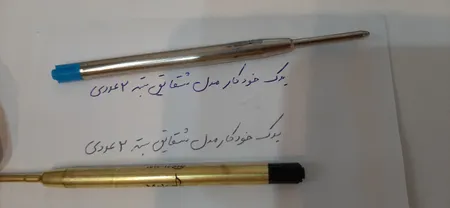 یدک خودکار مدل شقایق بسته ۲ عددی
یدک خودکار مدل شقایق بسته ۲ عددی